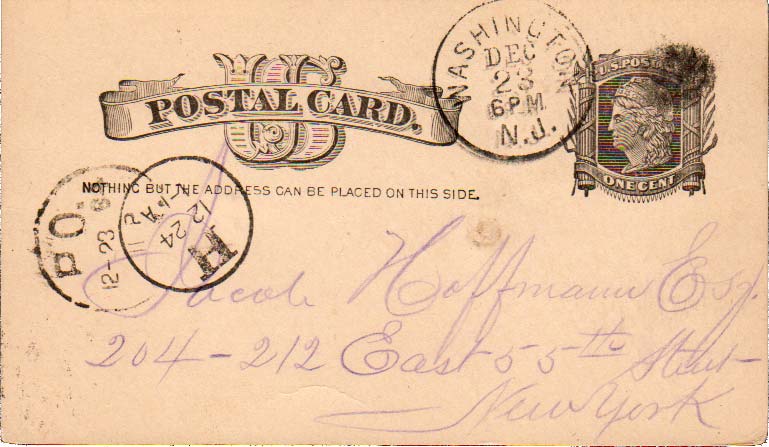 US
POSTAL CARD.
NOTHING BUT THE ADDRESS CAN BE PLACED ON THIS SIDE.
WASHINGTON
DEC
23
6 P.M
N.J.
U.S. POSTAGE
ONE CENT
P.O.
12-23
H
12 24
Jacob Hoffmann Esq.
204-212 East 55th Street
New York